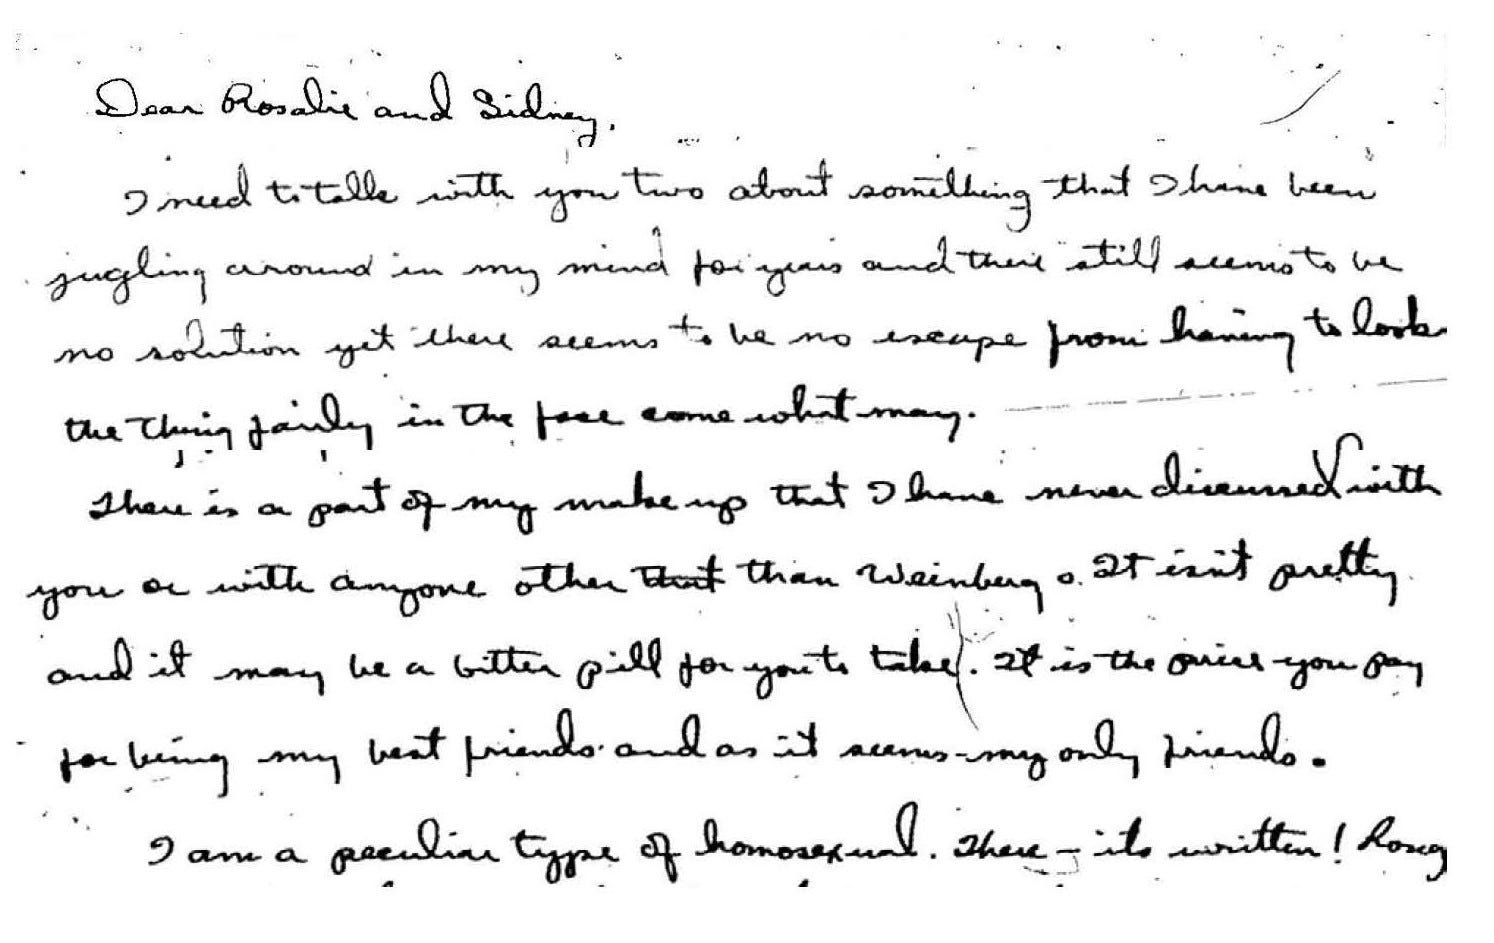 Dear Rosalie and Sidney,
I need to talk with you two about something that I have been
jugling around in my mind for years and there still seems to be
no solution yet there seems to be no escape from having to look
the thing fairly in the face come what may.
There is a part of my make up that I have never discussed with
you or with anyone other that than Weinberg. It isn't pretty
and it may be a bitter pill for you to take. It is the price you pay
for being my best friends and as it seems - my only friends.
I am a peculiar type of homosexual. There - its written! Rosey